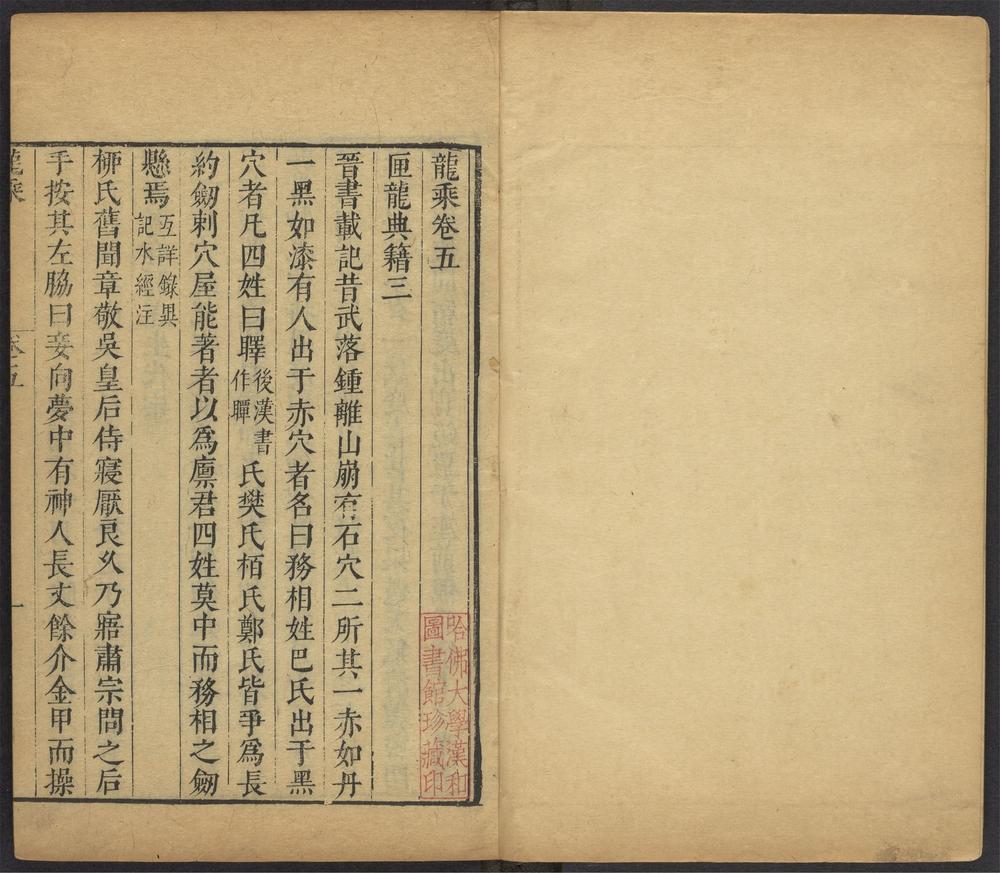 龍乘卷五
匣龍典籍三
晉書載記昔武落鍾離山崩有石穴二所其一赤如丹
一黑如漆有人出于赤穴者名曰務相姓巴氏出于黑
穴者凡四姓曰𣊓後漢書作瞫氏樊氏栢氏鄭氏皆爭爲長
約劒刺穴屋能著者以爲廪君四姓莫中而務相之劒
懸焉互詳錄異記水經注
柳氏舊聞章敬吳皇后侍寢厭良久乃寤肅宗問之后
手按其左脇曰妾向夢中有神人長丈餘介金甲而操
龍乘
卷五
一
哈佛大學漢和
圖書館珍藏印